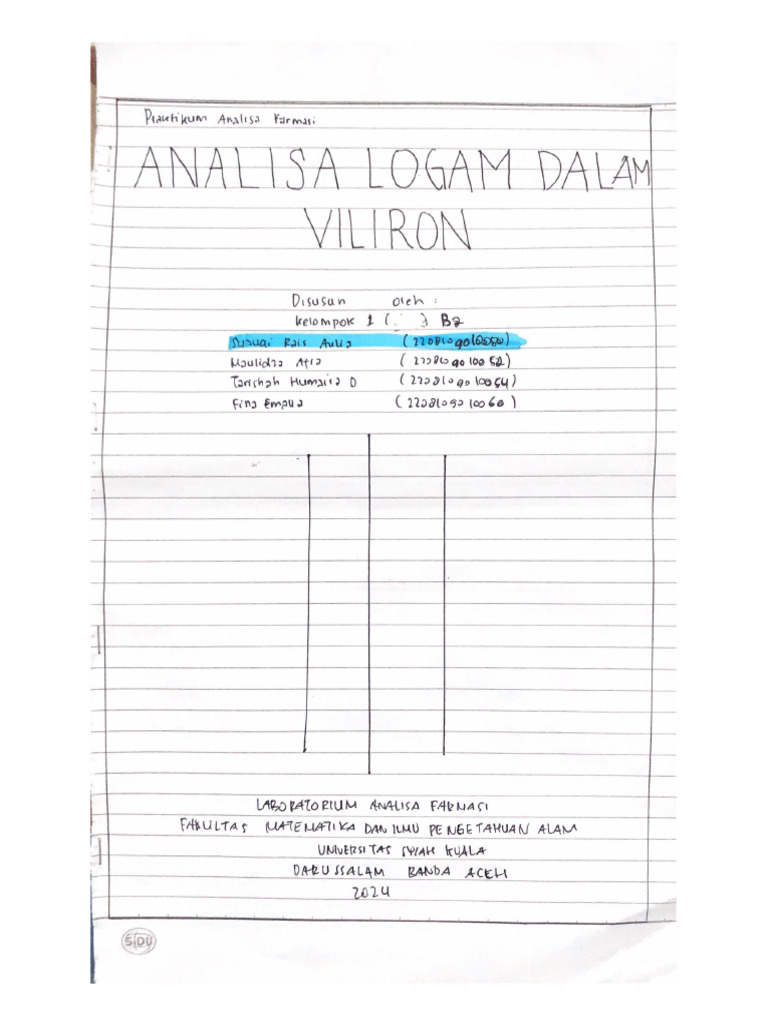 Praktikum Analisa Farmasi
ANALISA LOGAM DALAM
VILIRON
Disusun oleh :
Kelompok 1 ( ) B2
Rais Aulia (2208109010050)
Maulidza (2208109010052)
Humaira D (2208109010054)
Fina (2208109010060)
LABORATORIUM ANALISA FARMASI
FAKULTAS MATEMATIKA DAN ILMU PENGETAHUAN ALAM
UNIVERSITAS SYIAH KUALA
DARUSSALAM BANDA ACEH
2024
SIDU